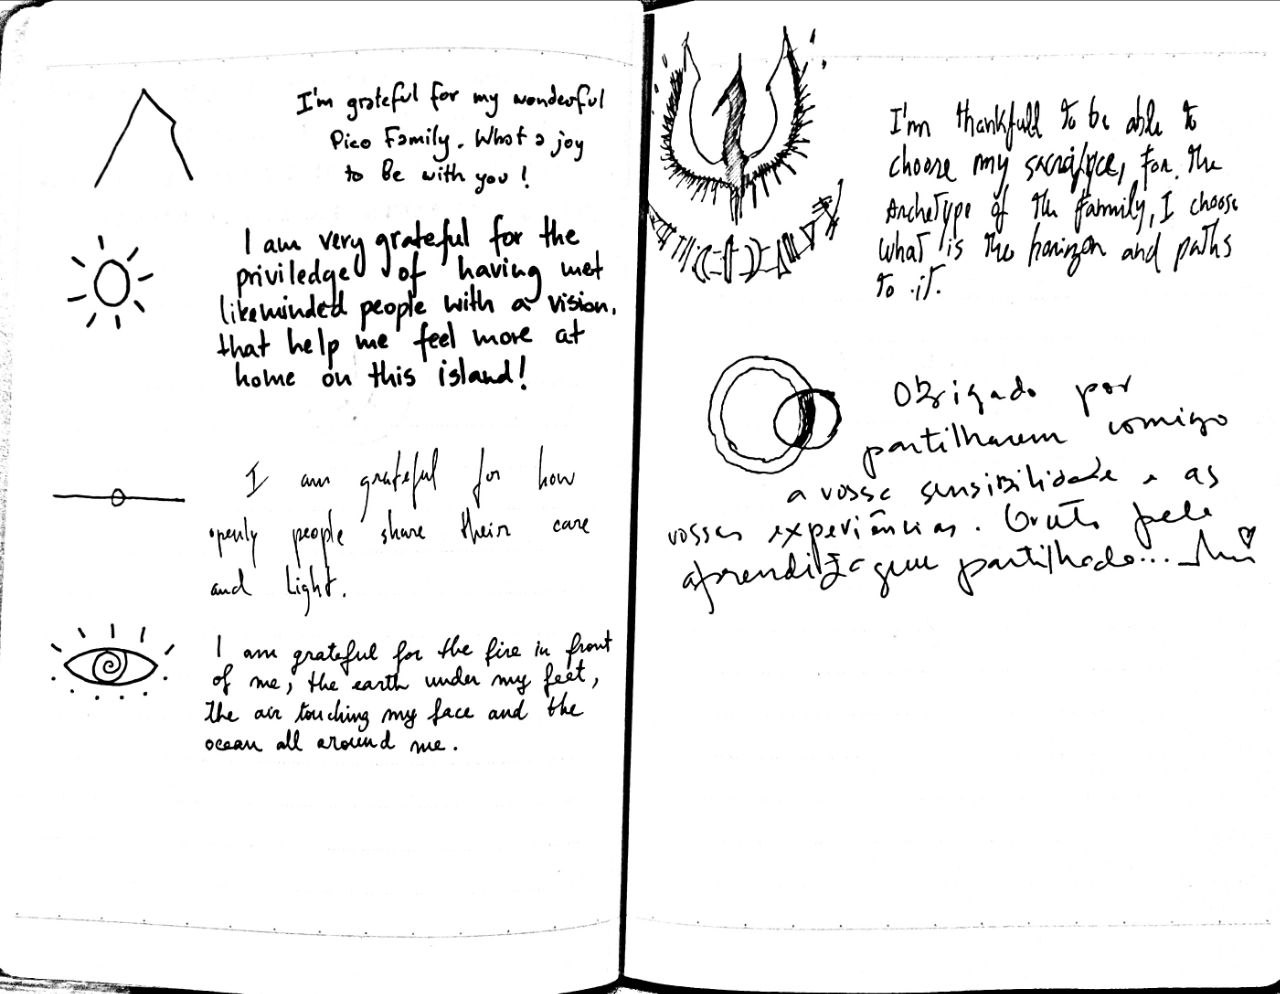 I'm grateful for my wonderful
Pico Family. What a joy
to be with you!
I am very grateful for the
priviledge of having met
likeminded people with a vision,
that help me feel more at
home on this island!
I am grateful for how
openly people share their care
and Light.
I am grateful for the fire in front
of me, the earth under my feet,
the air touching my face and the
ocean all around me.
I'm thankfull to be able to
choose my sacrifice, for the
Archetype of the family, I choose
what is the horizon and paths
to it.
Obrigado por
partilharem comigo
a vossa sensibilidade e as
vossas experiências. Grato pela
aprendizagem partilhada...